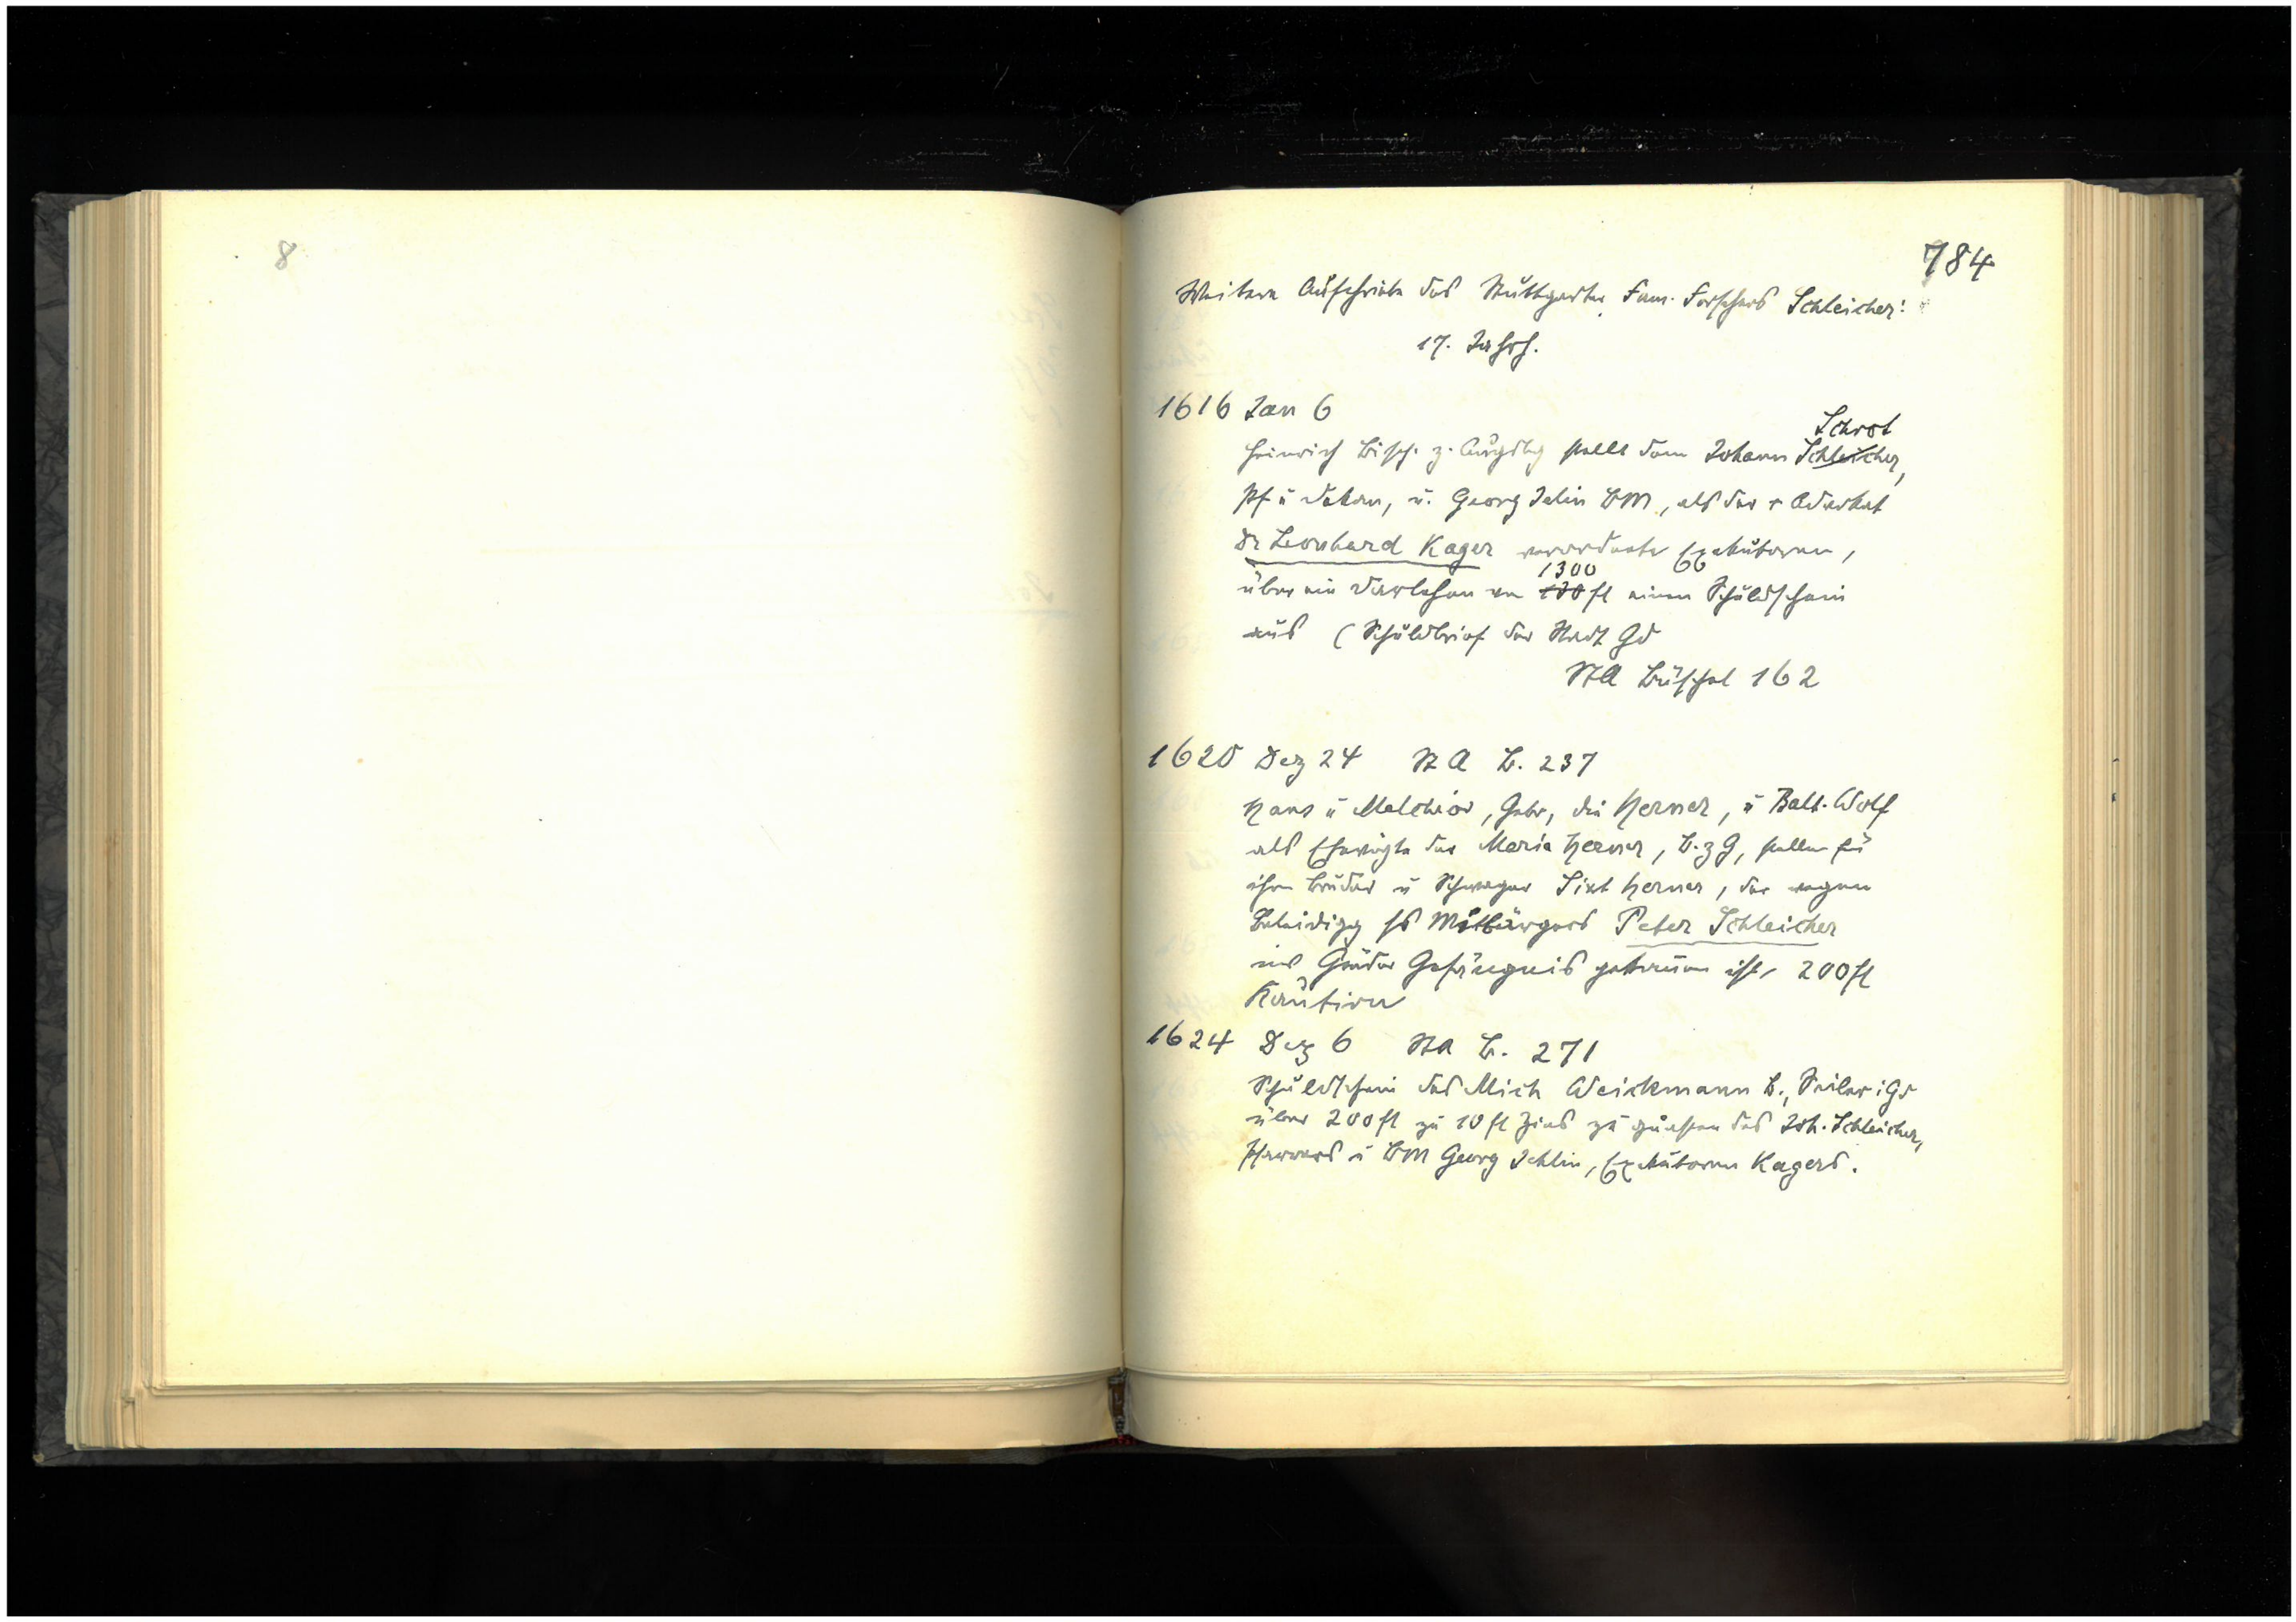 8
784
Weitere Aufschriebe des Stuttgarter Fam. Forschers Schleicher:
17. Jahrh.
1616 Jan 6
Schrot
Heinrich Bisch. z. Augsbg stellt dem Johann Schleicher,
Pf u Dekan, u. Georg Jelin BM, als der + Advokat
Dr Leonhard Kager verordnete Exekutoren,
1300
über ein Darlehen von 130 fl einen Schuldschein
aus (Schuldbrief der Stadt Gd
StA Büschel 162
1620 Dez 24 St A B. 237
Hans u Melchior, Gebr, die Herner, u Balt. Wolf
als Ehevögte der Maria Herner, B. z G, stellen für
ihren Bruder u Schwager Sixt Herner, der wegen
Beleidigg ss Mitbürgers Peter Schleicher
ins Gmünder Gefängnis gekommen ist, 200 fl
Kaution
1624 Dez 6 StA B. 271
Schuldschein des Mich Weickmann B., Seiler i Gd
über 200 fl zu 10 fl Zins zu gunsten des Joh. Schleicher,
Pfarrers u BM Georg Jehlin, Exekutoren Kagers.